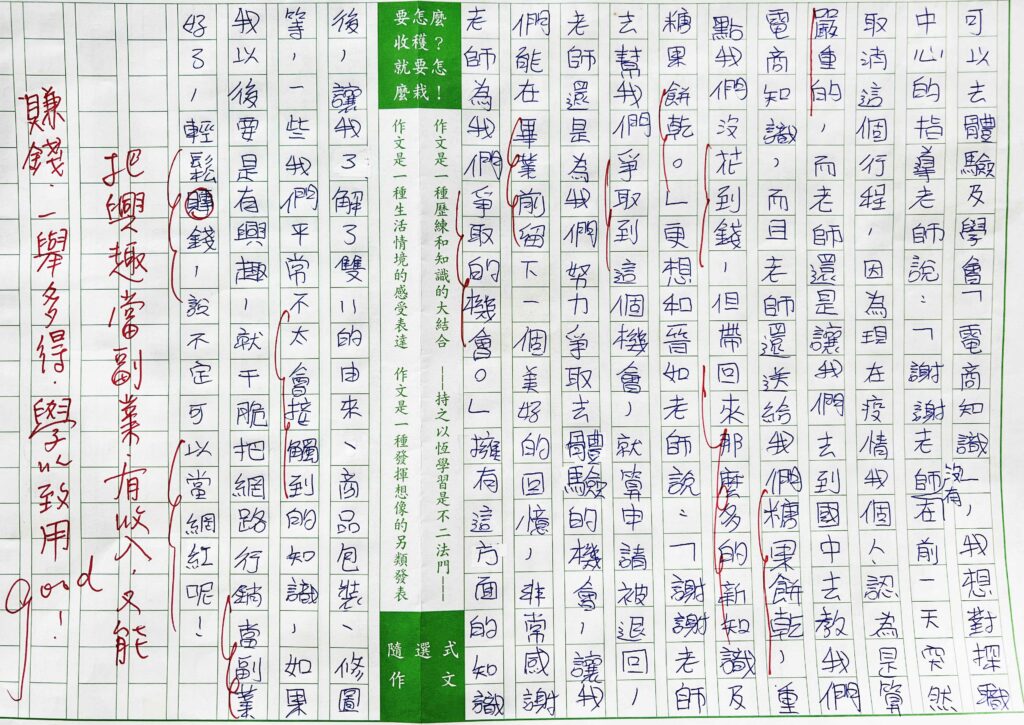 可以去體驗及學會「電商知識」，我想對探職
中心的指導老師說：「謝謝老師沒有在前一天突然
取消這個行程，因為現在疫情我個人認為是算
嚴重的，而老師還是讓我們去到國中去教我們
電商知識，而且老師還送給我們糖果餅乾，重
點我們沒花到錢，但帶回來那麼多的新知識及
糖果餅乾。」更想和晉如老師說：「謝謝老師
去幫我們爭取到這個機會，就算申請被退回，
老師還是為我們努力爭取去體驗的機會，讓我
們能在畢業前留下一個美好的回憶，非常感謝
老師為我們爭取的機會。」擁有這方面的知識
要怎麼
收穫？
就要怎
麼栽！
作文是一種歷練和知識的大結合 ──持之以恆學習是不二法門──
作文是一種生活情境的感受表達 作文是一種發揮想像的另類發表
隨選式
作文
後，讓我了解了雙11的由來、商品包裝、修圖
等，一些我們平常不太會接觸到的知識，如果
我以後要是有興趣，就干脆把網路行銷當副業
好了，輕鬆賺錢，說不定可以當網紅呢！
把興趣當副業.有收入.又能
賺錢.一舉多得.學以致用！
good